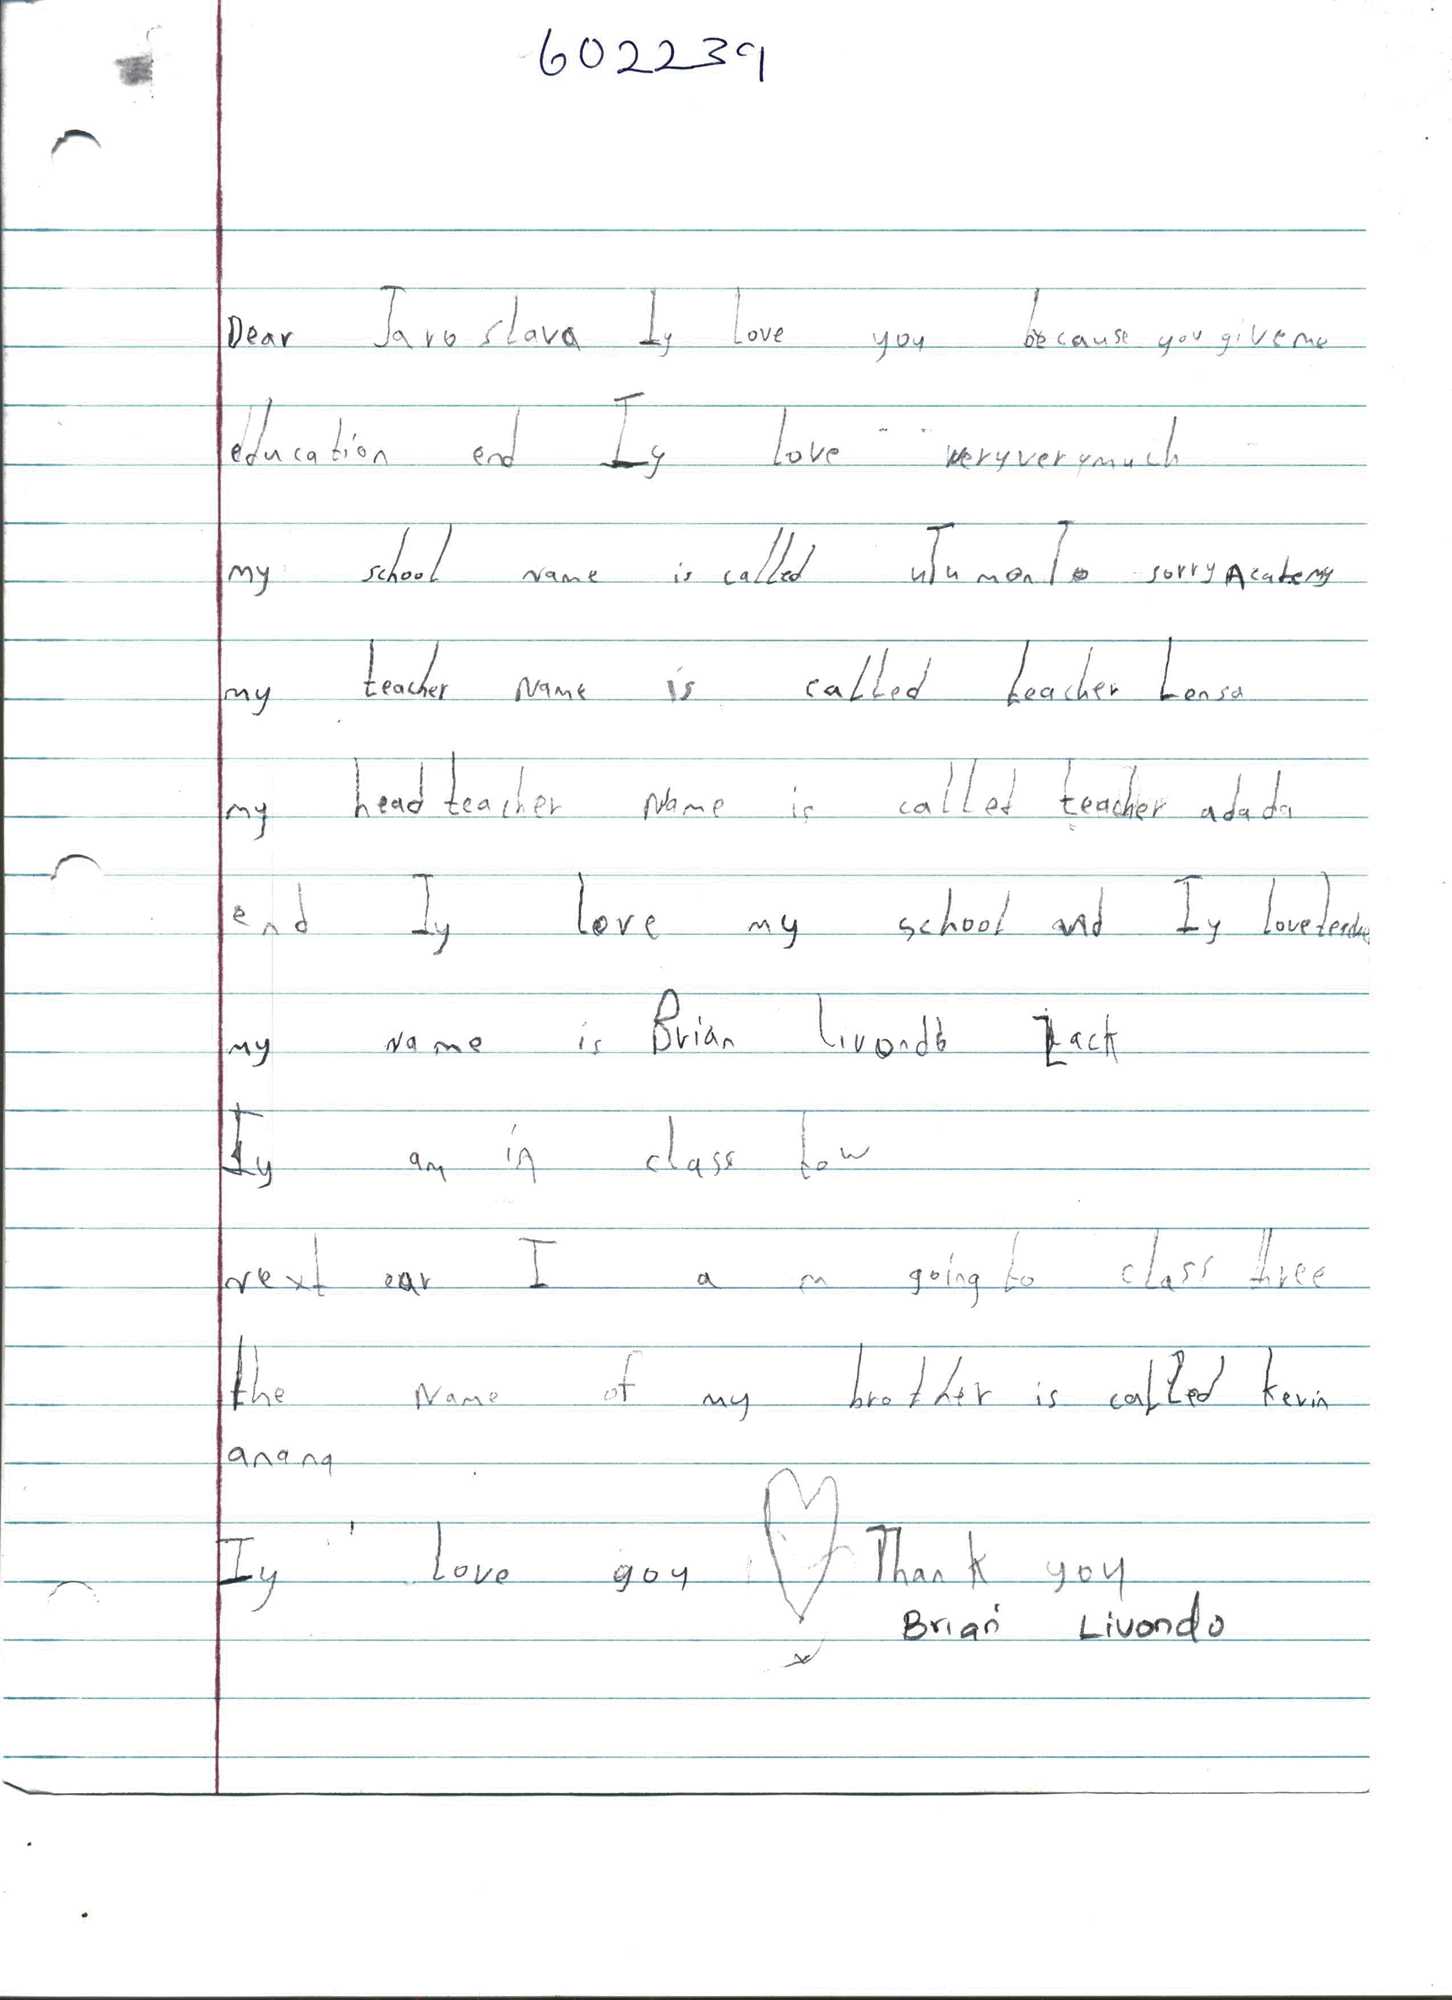 602239
Dear Jaroslava Iy love you because you give me
education end Iy love very very much
my school name is called uTumonTo sorry Acatemy
my teacher name is called teacher Lensa
my head teacher name is called teacher adada
end Iy love my school and Iy love teacher
my name is Brian livondo Zack
Iy am in class tow
next ear I a m going to class three
the name of my brother is called kevin
anana
Iy love goy Thank you
Brian Livondo